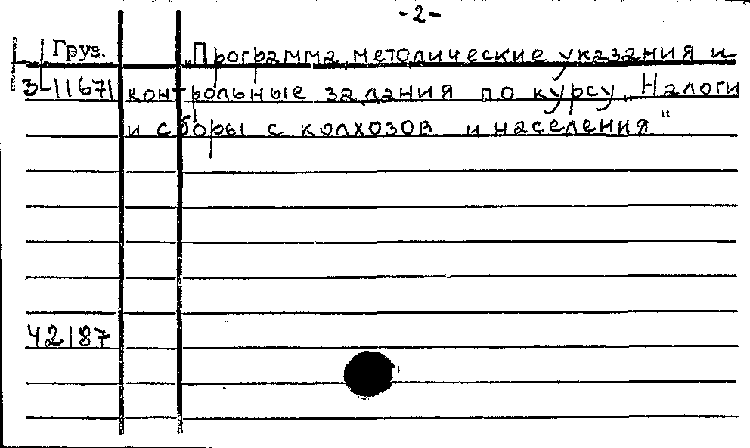 -2-
Груз. „Программа, методические указания и
3-11671 контрольные задания по курсу „Налоги
и сборы с колхозов и населения"
42187